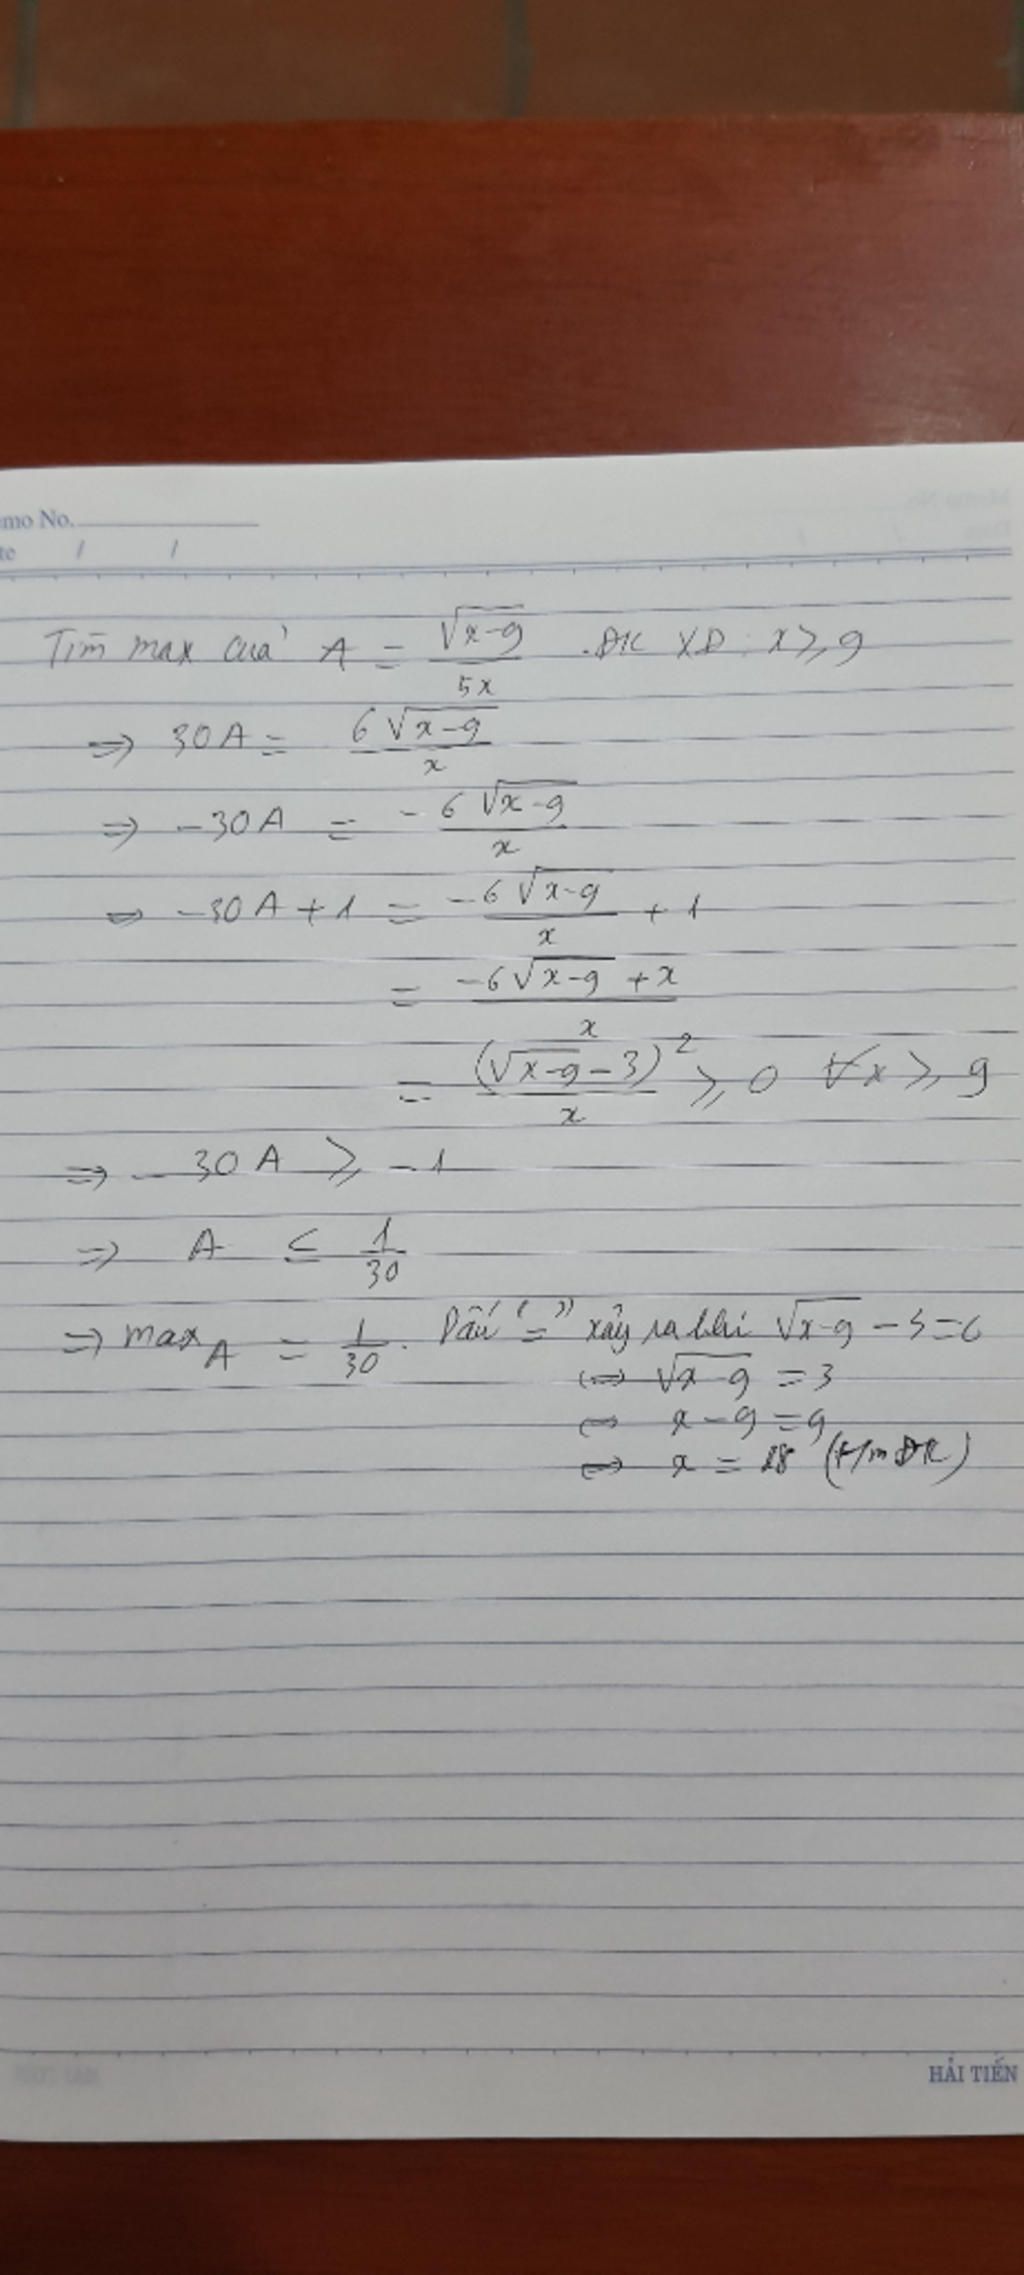 emo No.
te / /
Tìm max của A = √(x-9)/5x . ĐK XĐ : x ≥ 9
=> 30A = 6√(x-9)/x
=> -30A = -6√(x-9)/x
=> -30A + 1 = -6√(x-9)/x + 1
= (-6√(x-9) + x)/x
= (√(x-9) - 3)²/x ≥ 0 ∀x ≥ 9
=> -30A ≥ -1
=> A ≤ 1/30
=> max_A = 1/30. Dấu "=" xảy ra khi √(x-9) - 3 = 0
<=> √(x-9) = 3
<=> x - 9 = 9
<=> x = 18 (t/m ĐK)
HẢI TIẾN